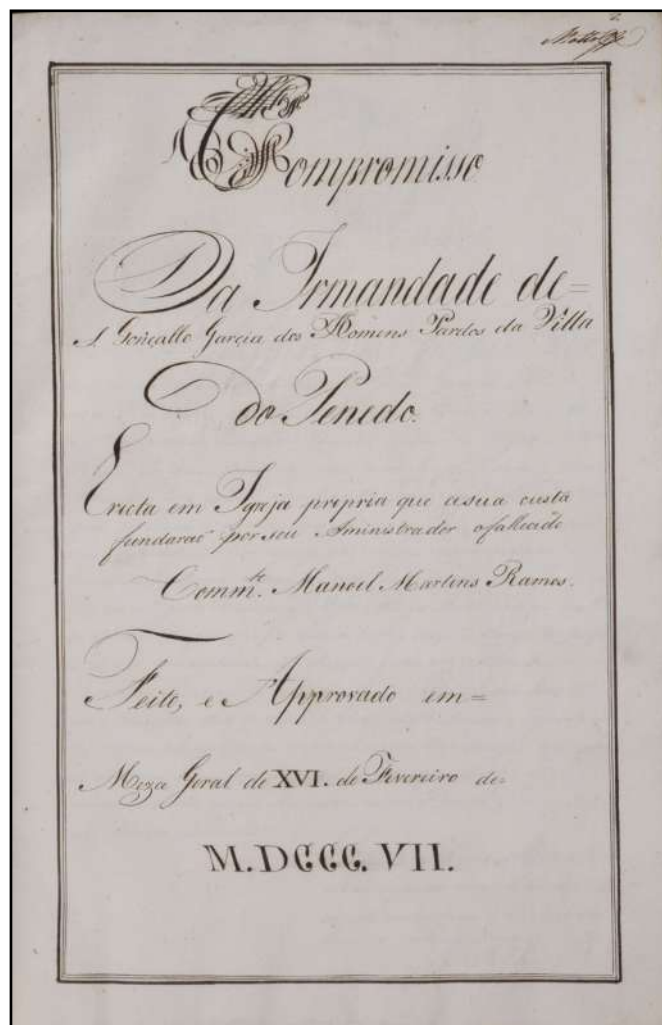 2.
Compromisso
Da Irmandade de=
S. Gonçallo Garcia dos Homens Pardos da Villa
do Penedo.
Erecta em Igreja propria que asua custa
fundaraõ por seu Aministrador ofallecido
Comm.te Manoel Martins Ramos.
Feito, e Approvado em=
Meza Geral de XVI. de Fevereiro de=
M.DCCC.VII.